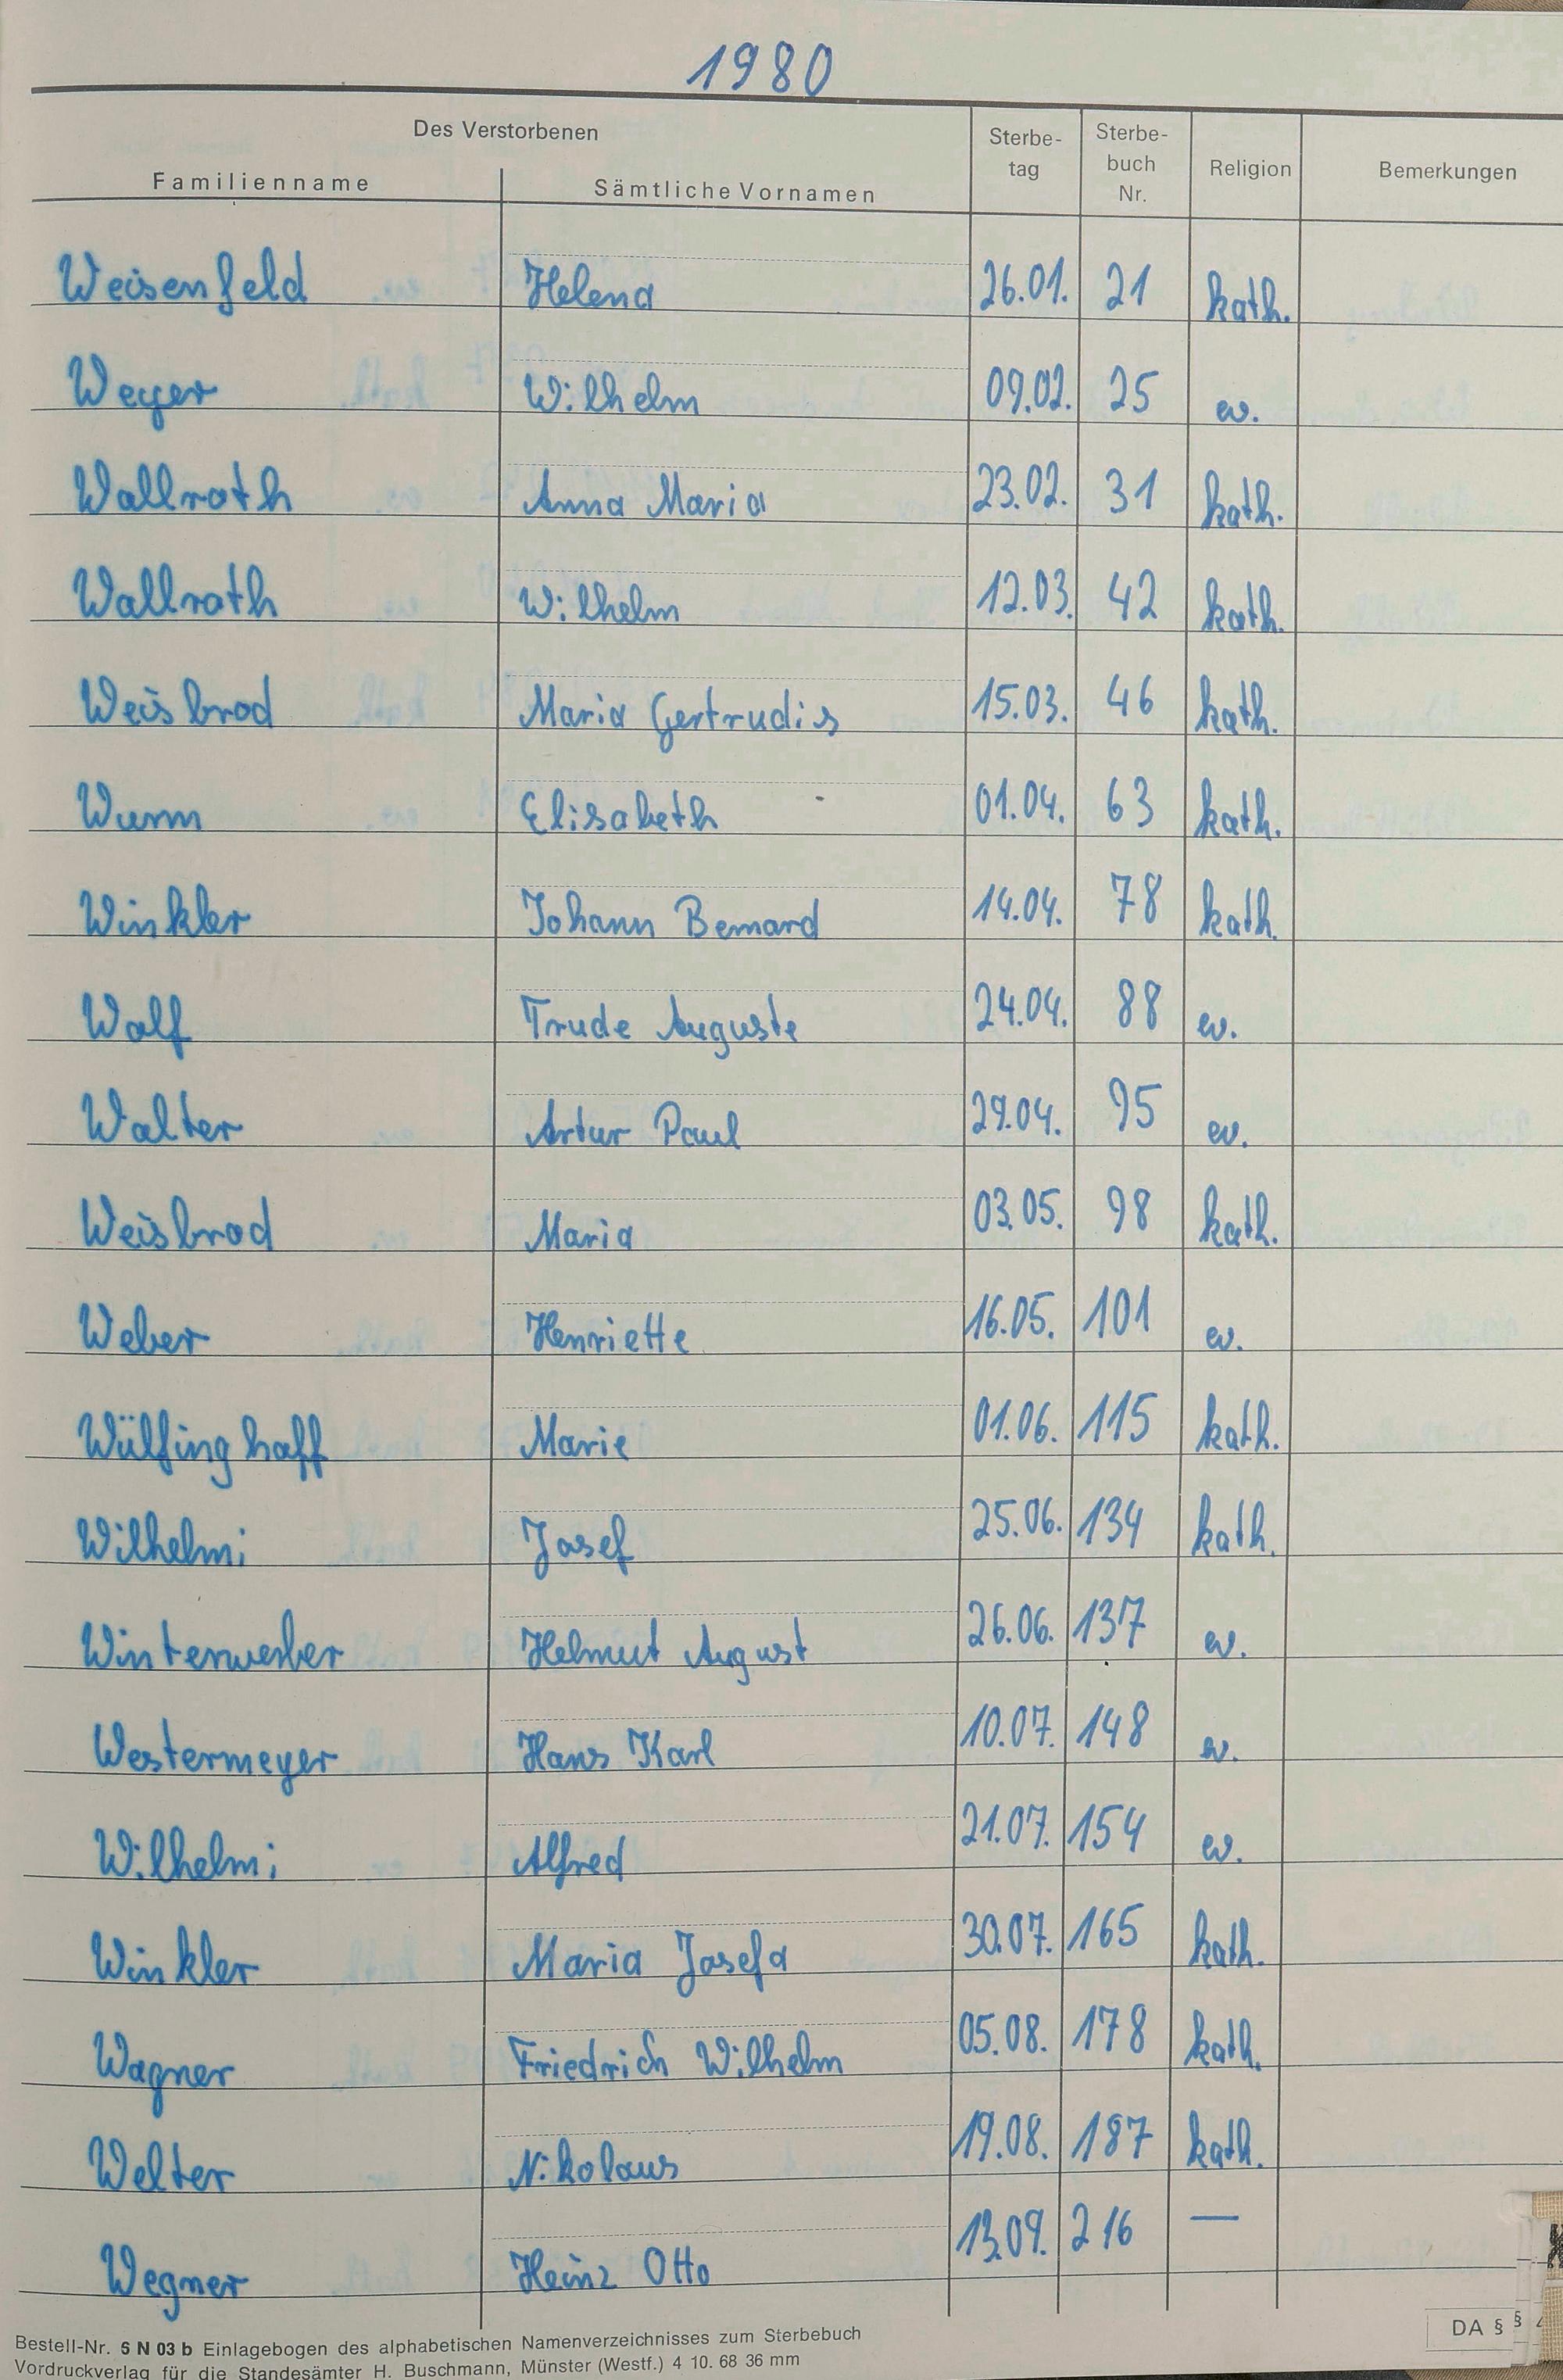 1980
Des Verstorbenen
Familienname Sämtliche Vornamen Sterbe-tag Sterbe-buch Nr. Religion Bemerkungen
Weisenfeld Helena 26.01. 21 kath.
Weyer Wilhelm 09.02. 25 ev.
Wallrath Anna Maria 23.02. 31 kath.
Wallrath Wilhelm 12.03. 42 kath.
Weisbrod Maria Gertrudis 15.03. 46 kath.
Wurm Elisabeth 01.04. 63 kath.
Winkler Johann Bernard 14.04. 78 kath.
Wolf Trude Auguste 24.04. 88 ev.
Walter Artur Paul 29.04. 95 ev.
Weisbrod Maria 03.05. 98 kath.
Weber Henriette 16.05. 101 ev.
Wülfinghoff Marie 01.06. 115 kath.
Wilhelmi Josef 25.06. 134 kath.
Winterwerber Helmut August 26.06. 137 ev.
Westermeyer Hans Karl 10.07. 148 ev.
Wilhelmi Alfred 21.07. 154 ev.
Winkler Maria Josefa 30.07. 165 kath.
Wagner Friedrich Wilhelm 05.08. 178 kath.
Welter Nikolaus 19.08. 187 kath.
Wegner Heinz Otto 13.09. 216 —
Bestell-Nr. S N 03 b Einlagebogen des alphabetischen Namenverzeichnisses zum Sterbebuch
Vordruckverlag für die Standesämter H. Buschmann, Münster (Westf.) 4 10. 68 36 mm
DA § §